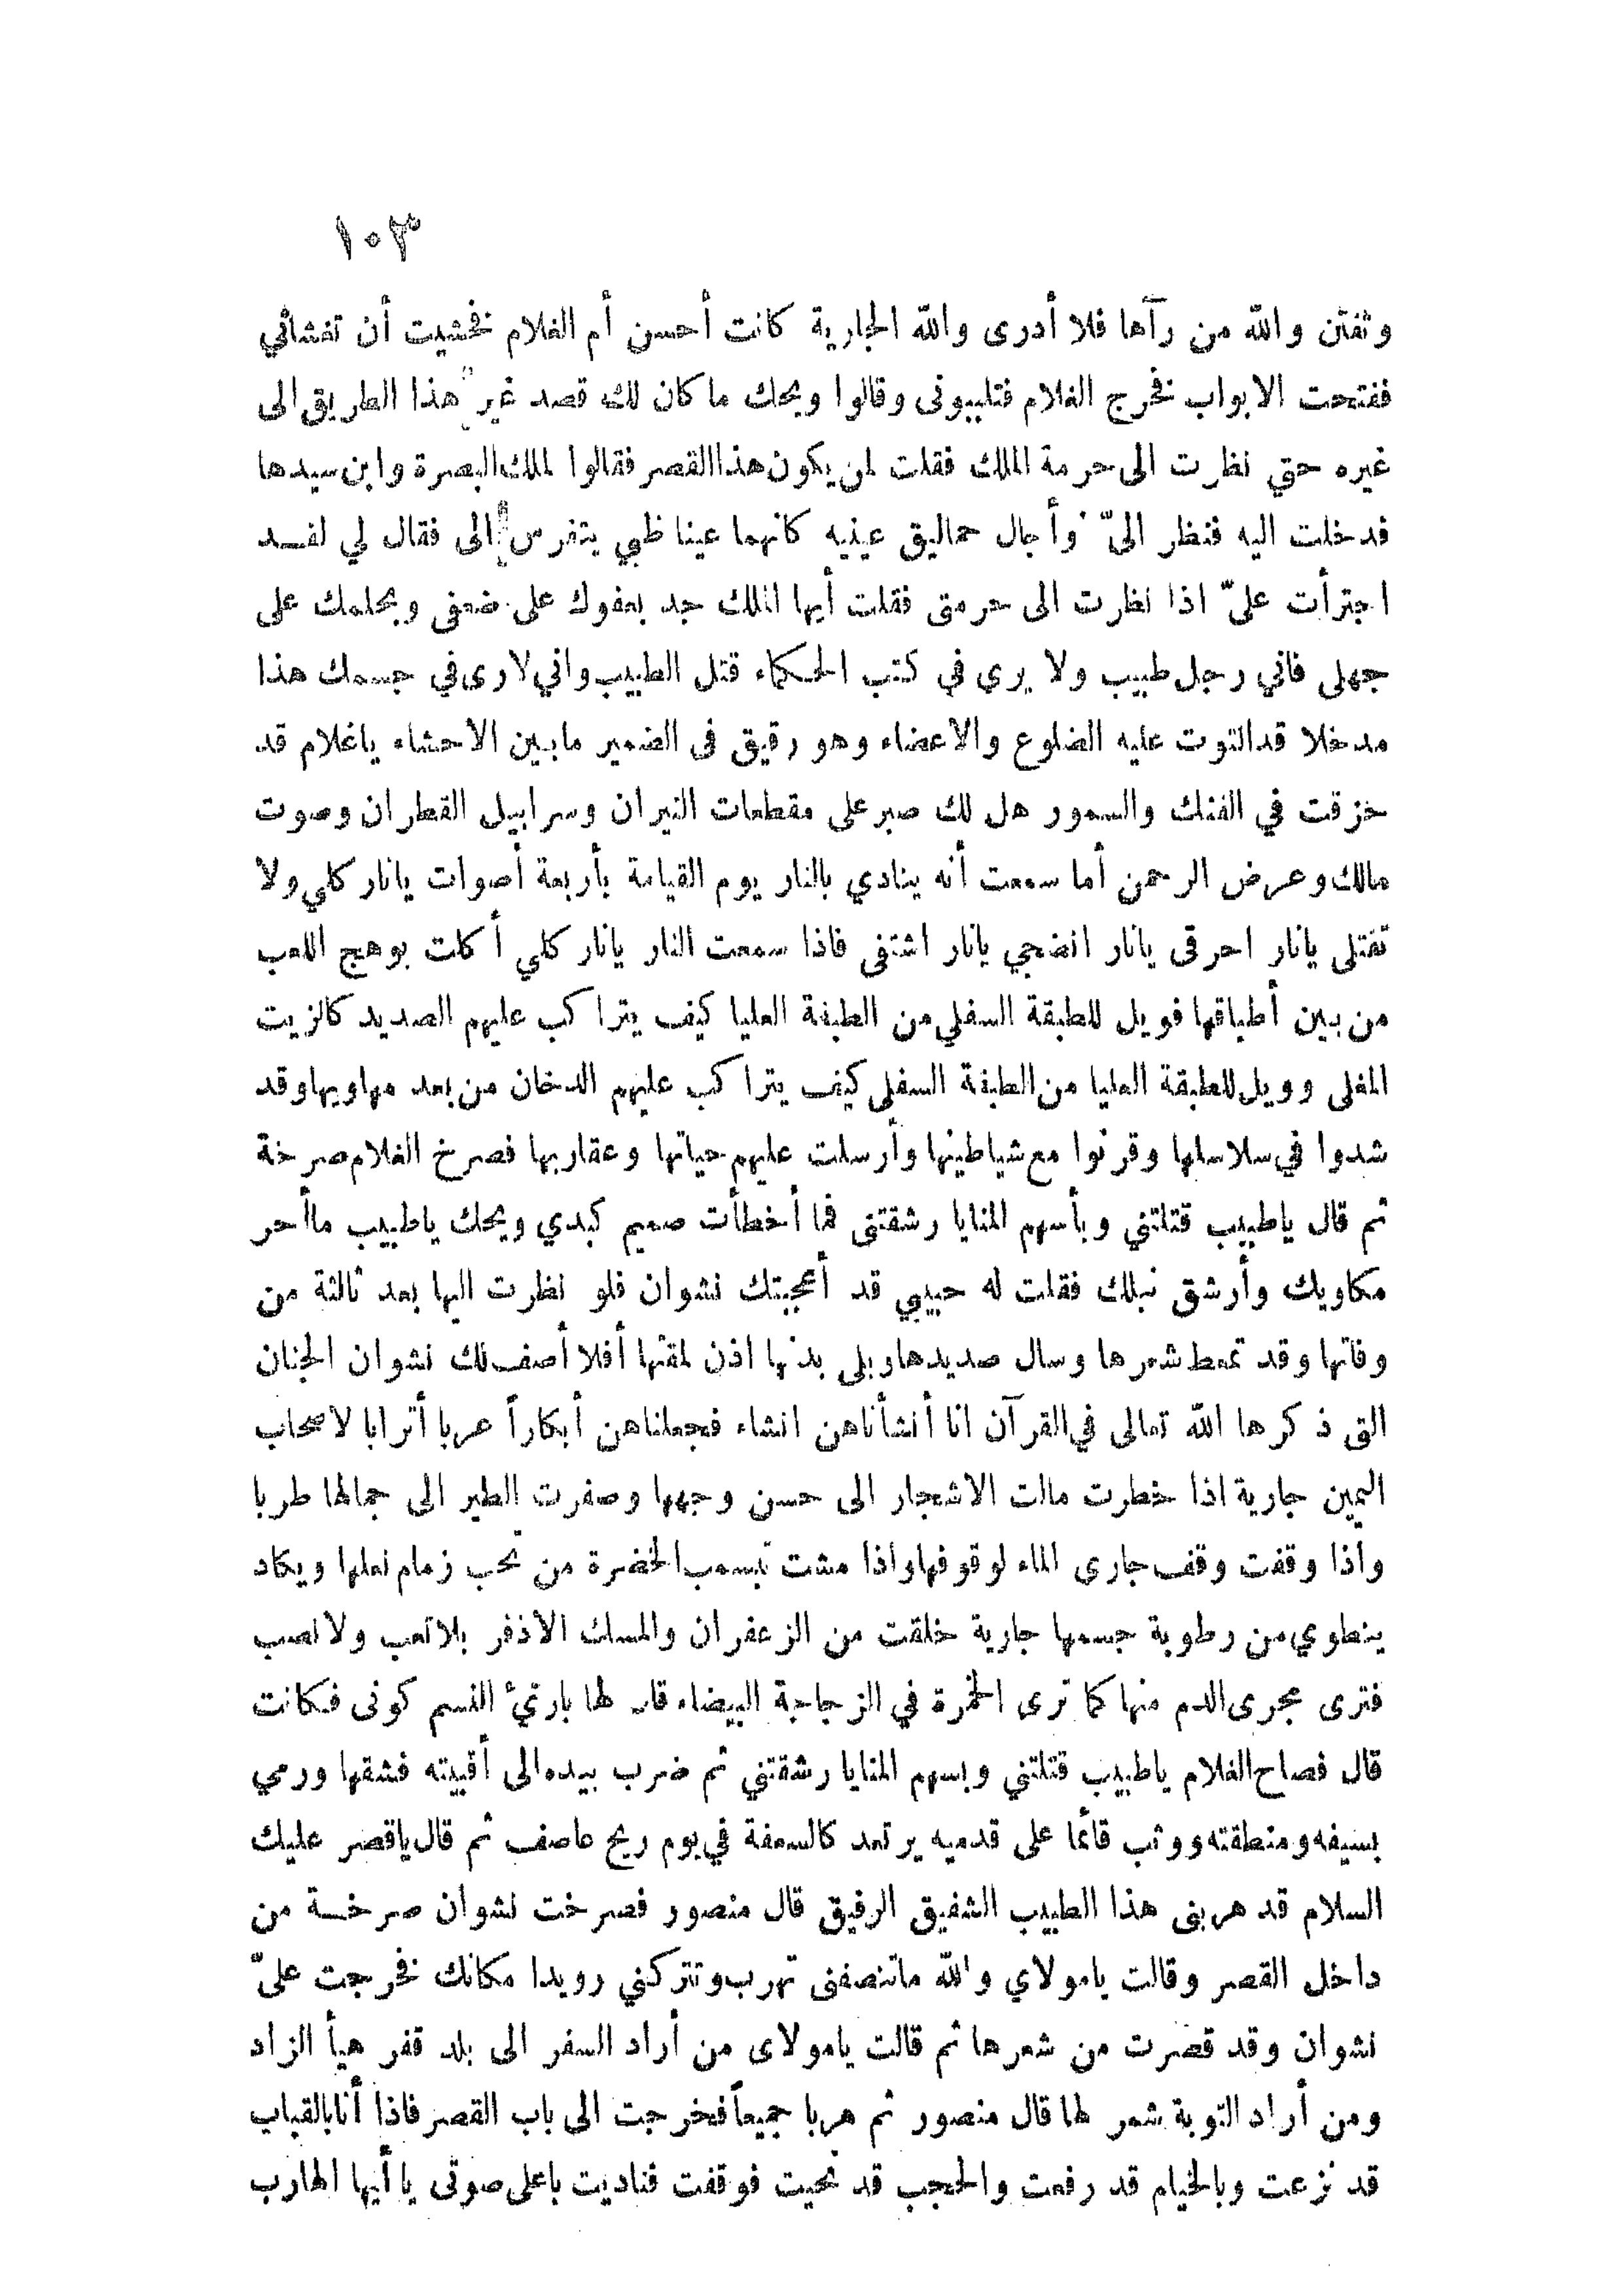 ١٠٣
وتفتن والله من رآها فلا أدرى والله الجارية كانت أحسن أم الغلام فخشيت أن تغشاني
ففتحت الابواب فخرج الغلام فتلببونى وقالوا ويحك ما كان لك قصد غير هذا الطريق الى
غيره حتي نظرت الى حرمة الملك فقلت لمن يكون هذا القصر فقالوا لملك البصرة وابن سيدها
فدخلت اليه فنظر الىّ وأجال حماليق عينيه كانهما عينا ظبي يتفرس الى فقال لي لقد
اجترأت علىّ اذا نظرت الى حرمتى فقلت أيها الملك جد بعفوك على ضعفى وبحلمك على
جهلى فاني رجل طبيب ولا يرى في كتب الحكماء قتل الطبيب واني لارى في جسمك هذا
مدخلا قد التوت عليه الضلوع والاعضاء وهو رقيق فى الضمير مابين الاحشاء ياغلام قد
خزقت في الفنك والسمور هل لك صبر على مقطعات النيران وسرابيل القطران وصوت
مالك وعرض الرحمن أما سمعت أنه ينادي بالنار يوم القيامة بأربعة أصوات يانار كلي ولا
تقتلى يانار احرقى يانار انضجي يانار اشتفى فاذا سمعت النار يانار كلي أكلت بوهيج اللهب
من بين أطباقها فويل للطبقة السفلي من الطبقة العليا كيف يتراكب عليهم الصديد كالزيت
المغلى وويل للطبقة العليا من الطبقة السفلى كيف يتراكب عليهم الدخان من بعد مهاويها وقد
شدوا في سلاسلها وقرنوا مع شياطينها وأرسلت عليهم حياتها وعقاربها فصرخ الغلام صرخة
ثم قال ياطبيب قتلتني وبأسهم المنايا رشقتنى فما أخطأت صميم كبدي ويحك ياطبيب ماأحر
مكاويك وأرشق نبلك فقلت له حبيبي قد أعجبتك نشوان فلو نظرت اليها بعد ثالثة من
وفاتها وقد تمعط شعرها وسال صديدها وبلى بدنها اذن لمقتها أفلا أصف لك نشوان الجنان
التى ذكرها الله تعالى في القرآن انا أنشأناهن انشاء فجعلناهن أبكاراً عربا أترابا لاصحاب
اليمين جارية اذا خطرت مالت الاشجار الى حسن وجهها وصفرت الطير الى جمالها طربا
واذا وقفت وقف جارى الماء لوقوفها واذا مشت تبسمت الخضرة من تحت زمام نعلها ويكاد
ينطوي من رطوبة جسمها جارية خلقت من الزعفران والمسك الاذفر بلاتعب ولا نصب
فترى مجرى الدم منها كما ترى الخمرة في الزجاجة البيضاء قال لها بارئ النسم كونى فكانت
قال فصاح الغلام ياطبيب قتلتني وبسهم المنايا رشقتني ثم ضرب بيده الى أقبيته فشقها ورمي
بسيفه ومنطقته ووثب قائما على قدميه يرتعد كالسعفة في يوم ريح عاصف ثم قال ياقصر عليك
السلام قد هربنى هذا الطبيب الشفيق الرفيق قال منصور فصرخت نشوان صرخة من
داخل القصر وقالت يامولاي والله ماتنصفنى تهرب وتتركني رويدا مكانك فخرجت علىّ
نشوان وقد قصرت من شعرها ثم قالت يامولاى من أراد السفر الى بلد قفر هيأ الزاد
ومن أراد التوبة شمر لها قال منصور ثم هربا جميعاً فخرجت الى باب القصر فاذا أنا بالقباب
قد نزعت وبالخيام قد رفعت والحجب قد نحيت فوقفت فناديت باعلى صوتى ياأيها الهارب